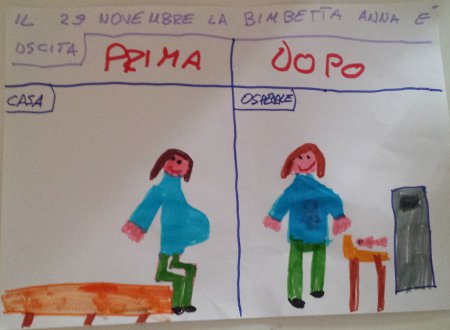 IL 29 NOVEMBRE LA BIMBETTA ANNA È
USCITA
PRIMA
DOPO
CASA
OSPEDALE